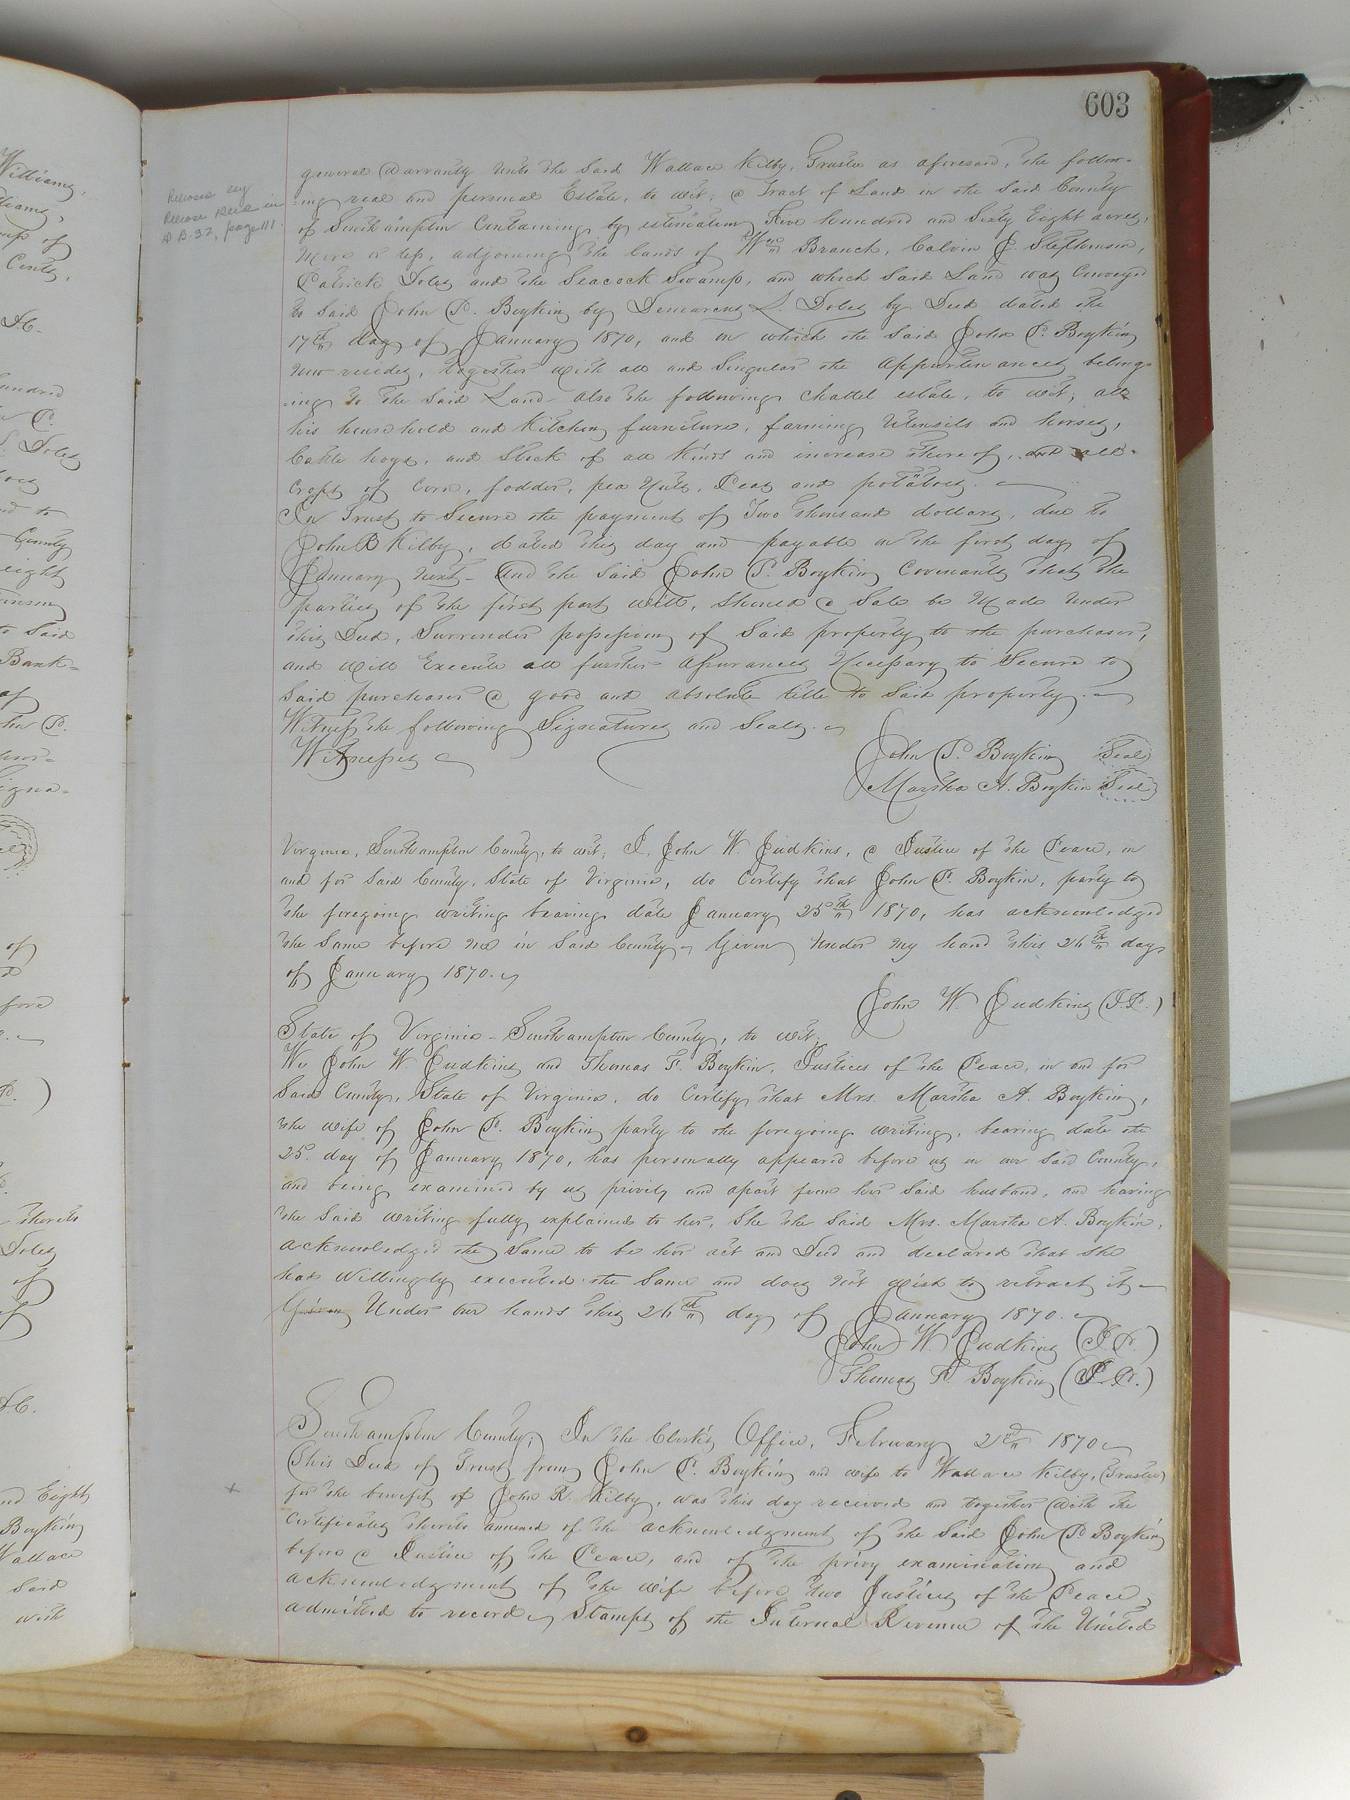 603
Release by
Release Deed in
D.B. 32, page 111.
general Warranty unto the said Wallace Kilby, Trustee as aforesaid, the follow-
-ing real and personal Estate, to wit; a Tract of Land in the said County
of Southampton Containing by estimation Five hundred and Sixty Eight acres,
more or less, adjoining the lands of Wm Branch, Calvin J. Stephenson,
Patrick Doles and the Seacock Swamp, and which said Land was Conveyed
to said John P. Boykin by L. Doles by Deed dated the
17th day of January 1870, and on which the said John P. Boykin
now resides, together with all and Singular the Appurtenances belong-
-ing to the said Land - also the following chattel estate, to wit; all
his household and Kitchen furniture, farming Utensils and horses,
Cattle hogs, and Stock of all kinds and increase thereof, and all
crops of Corn, fodder, pea Nuts, Peas and potatoes.
In Trust to Secure the payment of Two thousand dollars, due to
John R Kilby, dated this day and payable on the first day of
January next - And the said John P. Boykin Covenants that the
parties of the first part will, should a Sale be Made under
this Deed, Surrender possession of Said property to the purchaser,
and will Execute all further assurances Necessary to Secure to
said purchaser a good and absolute title to said property.
Witness the following Signatures and Seals.
Witnesses
John P. Boykin Seal
Martha A. Boykin Seal
Virginia, Southampton County, to wit; I, John W. Judkins, a Justice of the Peace, in
and for said County, State of Virginia, do Certify that John P. Boykin, party to
the foregoing writing bearing date January 25th 1870, has acknowledged
the Same before me in Said County. Given Under my hand this 26th day
of January 1870.
John W. Judkins (J.P.)
State of Virginia - Southampton County, to wit;
We John W. Judkins and Thomas F. Boykin, Justices of the Peace, in and for
Said County, State of Virginia, do Certify that Mrs. Martha A. Boykin,
the wife of John P. Boykin party to the foregoing writing, bearing date the
25 day of January 1870, has personally appeared before us in our said County,
and being examined by us privily and apart from her said husband, and having
the Said writing fully explained to her, She the Said Mrs. Martha A. Boykin,
acknowledged the Same to be her act and Deed and declared that she
had Willingly executed the Same and does not wish to retract it -
Given Under our hands this 26th day of January 1870.
John W. Judkins (J.P.)
Thomas F. Boykin (J.P.)
Southampton County; In the Clerk's Office, February 21st 1870
This Deed of Trust from John P. Boykin and wife to Wallace Kilby, (Trustee)
for the benefit of John R. Kilby, was this day received and together with the
Certificates thereto annexed of the acknowledgment of the said John P. Boykin
before a Justice of the Peace, and of the privy examination and
acknowledgment of the wife before two Justices of the Peace,
admitted to record. Stamps of the Internal Revenue of the United